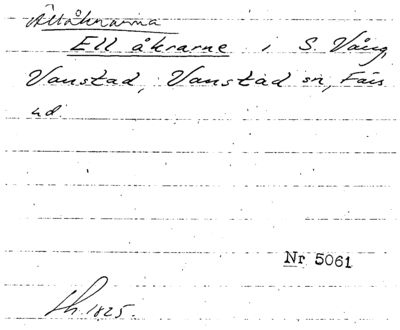 Ellåkrarna
Ell åkrarne i S. Vång,
Vanstad, Vanstad sn, Färs
hd.
Nr 5061
Lh. 1825.